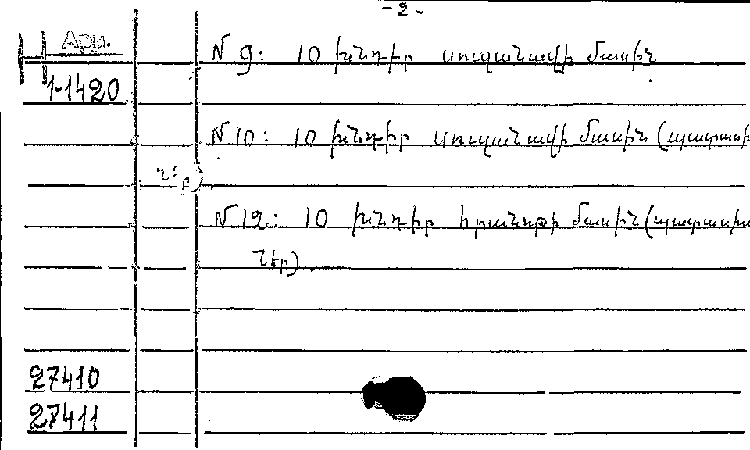 - 2 -
Арм.
1-1420
N 9: 10 խնդիր սուզանավի մասին
N 10: 10 խնդիր սուզանավի մասին (պատասխ
ներ)
N 12: 10 խնդիր հրանոթի մասին (պատասխա
ներ)
27410
27411